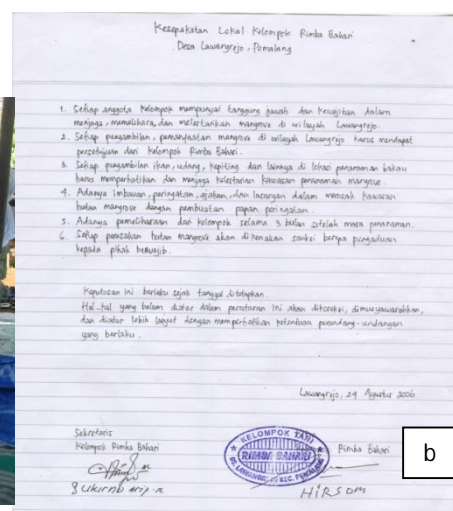 Kesepakatan Lokal Kelompok Rimba Bahari
Desa Lawangrejo, Pemalang
1. Setiap anggota kelompok mempunyai tanggung jawab dan kewajiban dalam
menjaga, memelihara, dan melestarikan mangrove di wilayah Lawangrejo.
2. Setiap pengambilan, pemanfaatan mangrove di wilayah Lawangrejo harus mendapat
persetujuan dari kelompok Rimba Bahari.
3. Setiap pengambilan ikan, udang, kepiting dan lainnya di lokasi penanaman bakau
harus memperhatikan dan menjaga kelestarian kawasan penanaman mangrove.
4. Adanya imbauan, peringatan, ajakan, dan larangan dalam merusak kawasan
hutan mangrove dengan pembuatan papan peringatan.
5. Adanya pemeliharaan dari kelompok selama 3 bulan setelah masa penanaman.
6. Setiap perusakan hutan mangrove akan dikenakan sanksi berupa pengaduan
kepada pihak berwajib.
Keputusan ini berlaku sejak tanggal ditetapkan.
Hal-hal yang belum diatur dalam peraturan ini akan dikoreksi, dimusyawarahkan,
dan diatur lebih lanjut dengan memperhatikan ketentuan perundang-undangan
yang berlaku.
Lawangrejo, 24 Agustus 2006
Sekretaris
Kelompok Rimba Bahari
KELOMPOK TANI
RIMBA BAHARI
Rimba Bahari
HIRSOM
b